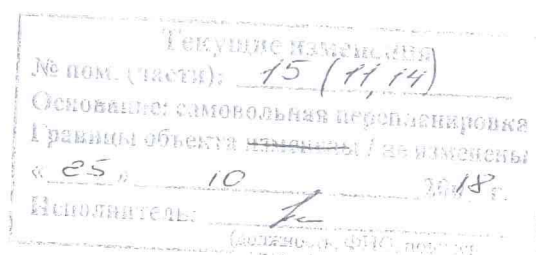 Текущие изменения
№ пом. (части): 15 (11,14)
Основание: самовольная перепланировка
Границы объекта изменены / не изменены
« 25 » 10 2018 г.
Исполнитель:
(должность, ФИО, подпись